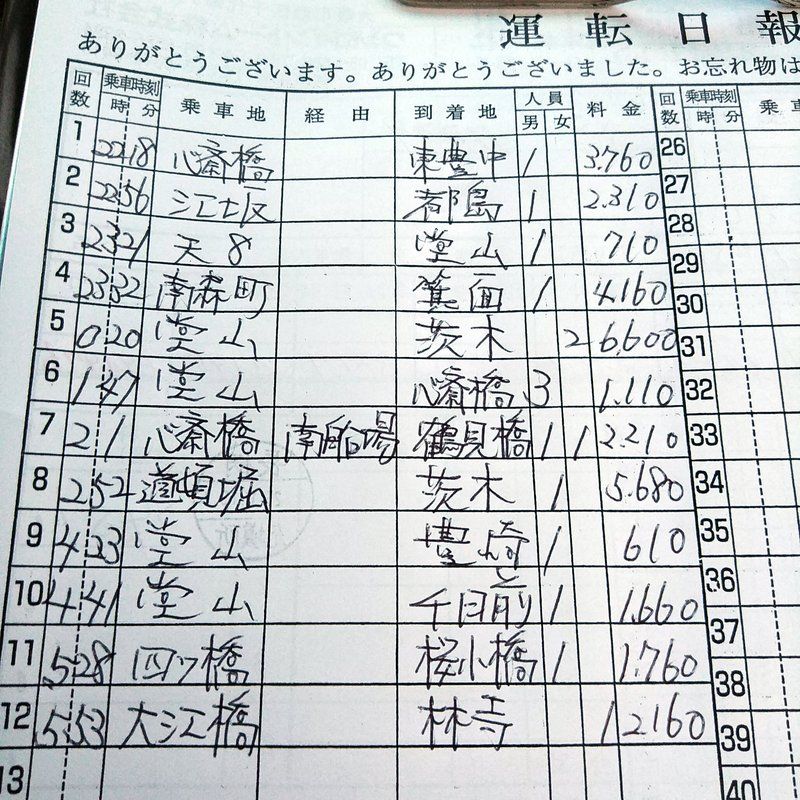 運転日報
ありがとうございます。ありがとうございました。お忘れ物は
回数 乗車時刻 時 分 乗車地 経由 到着地 人員 男 女 料金 回数 乗車時刻 時 分 乗車
1 22 18 心斎橋 東豊中 1 3.760 26
2 22 56 江坂 都島 1 2.310 27
3 23 21 天8 堂山 1 710 28
4 23 32 南森町 箕面 1 4.160 29 30
5 0 20 堂山 茨木 2 6.600 31
6 1 47 堂山 心斎橋 3 1.110 32
7 2 1 心斎橋 南船場 鶴見橋 1 1 2.210 33
8 2 52 道頓堀 茨木 1 5.680 34
9 4 23 堂山 豊崎 1 610 35
10 4 41 堂山 千日前 1 1.660 36 37
11 5 28 四ツ橋 桜小橋 1 1.760 38
12 5 53 大江橋 林寺 1 2160 39
13 40